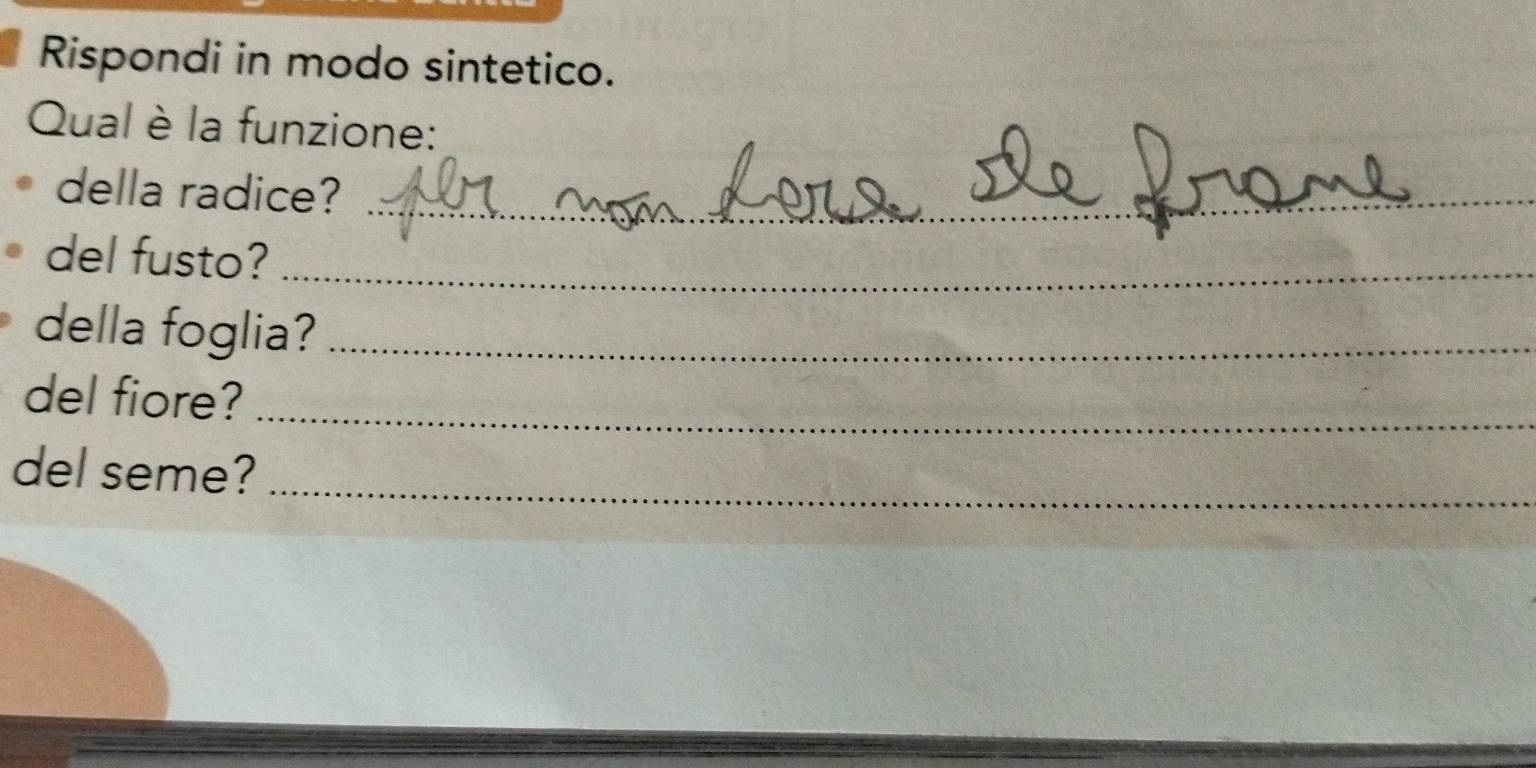 Rispondi in modo sintetico.
Qual è la funzione:
• della radice? per non fare le frane
• del fusto?
• della foglia?
del fiore?
del seme?